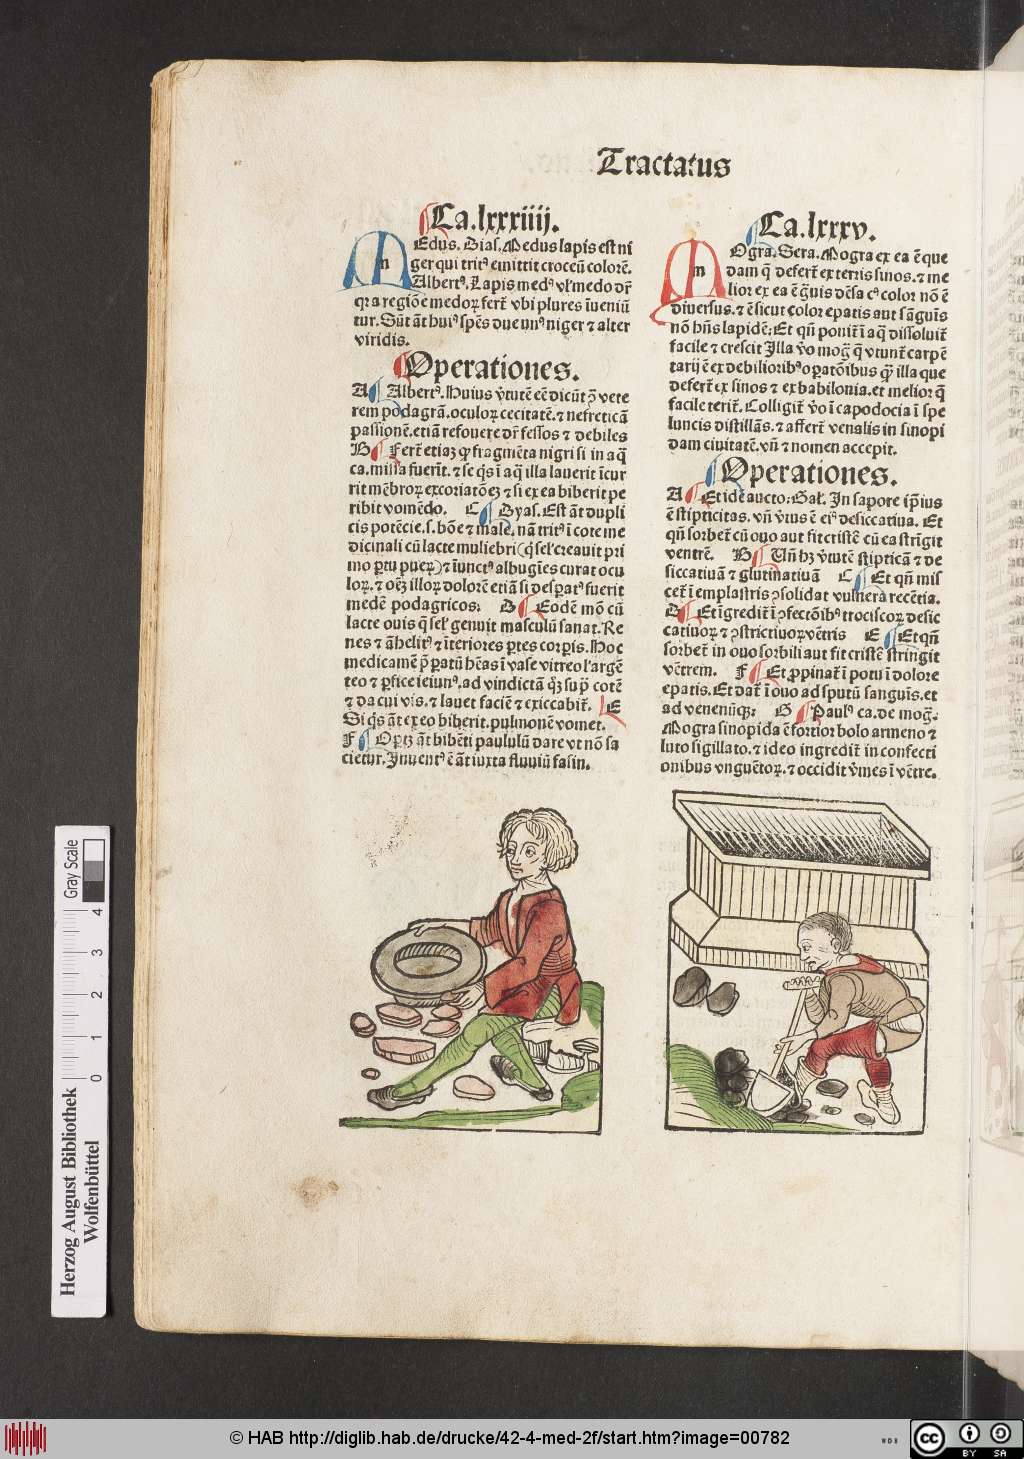 Tractatus
Ca.lxxxiiij.
MEdus. Dias. Medus lapis est ni
ger qui tritꝰ emittit croceū colorē.
Albertꝰ. Lapis medꝰ vl' medo dr̄
q̄ ī a regiōe medoꝝ fert̄ vbi plures īueniū
tur. Sūt āt huiꝰ sp̄es due vnꝰ niger ⁊ alter
viridis.
Operationes.
A Albertꝰ. Huius v̓tutē eē dicūt ꝓ vete
rem podagrā. oculoꝝ cecitatē. ⁊ nefreticā
passionē. etiā refouere dr̄ fessos ⁊ debiles
B Fert̄ etiaꝫ ꝙ fragmēta nigri si in aq̄
ca. missa fuerīt. ⁊ se q̄s ī aq̄ illa lauerit īcur
rit mēbroꝝ excoriatōeꝫ ⁊ si ex ea biberit pe
ribit vomēdo. C Dyas. Est āt dupli
cis potēcie. s. bōe ⁊ male. nā tritꝰ ī cote me
dicinali cū lacte muliebri (q̄ sel' creauit pri
mo ꝑtu pueꝝ) ⁊ īunctꝰ albugīes curat ocu
loꝝ. ⁊ oēꝫ illoꝝ dolorē etiā si desꝑatꝰ fuerit
medēt podagricos: D Eodē mō cū
lacte ouis q̄ sel' genuit masculū sanat. Re
nes ⁊ āhelitꝰ ⁊ īteriores ꝑtes corꝑis. Hoc
medicamē p̄paratū hēas ī vase vitreo l' argē
teo ⁊ ꝑfice ieiunꝰ. ad vindictā qꝫ su p̄ cotē
⁊ da cui vis. ⁊ lauet faciē ⁊ exiccabit̄. E
Si q̄s āt ex eo biberit. pulmonē vomet.
F Oꝑtꝫ āt bibēti paululū dare vt nō sa
cietur. Inuentꝰ ē āt iuxta fluuiū fasin.
Ca.lxxxv.
MOgra. Sera. Mogra ex ea ē que
dam q̄ defert̄ ex terris sinos. ⁊ me
lior ex ea ē gͣuis dēsa cꝰ color nō ē
diuersus. ⁊ ē sicut color epatis aut sāguis
nō hn̄s lapidē: Et qn̄ ponit̄ ī aq̄ dissoluit̄
facile ⁊ crescit Illa v̓o mogͣ q̄ vtunt̄ carpē
tarij ē ex debiliorib̕ oꝑatōibus qꝫ illa que
defert̄ ex sinos ⁊ ex babilonia. et melior q̄
facile terit̄. Colligit̄ v̓o ī capodocia ī spe
luncis distillās. ⁊ affert̄ venalis in sinopi
dam ciuitatē. vn̄ ⁊ nomen accepit.
Operationes.
A Et idē aucto: Gal'. In sapore ip̄ius
ē stipticitas. vn̄ v̓tus ē eiꝰ desiccatiua. Et
qn̄ sorbet̄ cū ouo aut fit cristē cū ea strīgit
ventrē. B Un̄ hꝫ v̓tutē stipticā ⁊ de
siccatiuā ⁊ glutinatiuā C Et qn̄ mis
cet̄ ī emplastris ꝯsolidat vulnera recētia.
D Et īgredit̄ ī ꝯfectōib̕ trociscoꝝ desic
catiuoꝝ ⁊ ꝯstrictiuoꝝ vētris E Et qn̄
sorbet̄ in ouo sorbili aut fit cristē stringit
vētrem. F Et ꝓpinat̄ ī potu ī dolore
epatis. Et dat̄ ī ouo ad sputū sanguīs. et
ad venenūqꝫ: G Paulꝰ ca. de mogͣ.
Mogra sinopida ē fortior bolo armeno ⁊
luto sigillato. ⁊ ideo ingredit̄ in confecti
onibus vnguētoꝝ. ⁊ occidit v̓mes ī vētre.
Gray Scale
0 1 2 3 4
Herzog August Bibliothek
Wolfenbüttel
© HAB http://diglib.hab.de/drucke/42-4-med-2f/start.htm?image=00782
WDB
cc BY SA